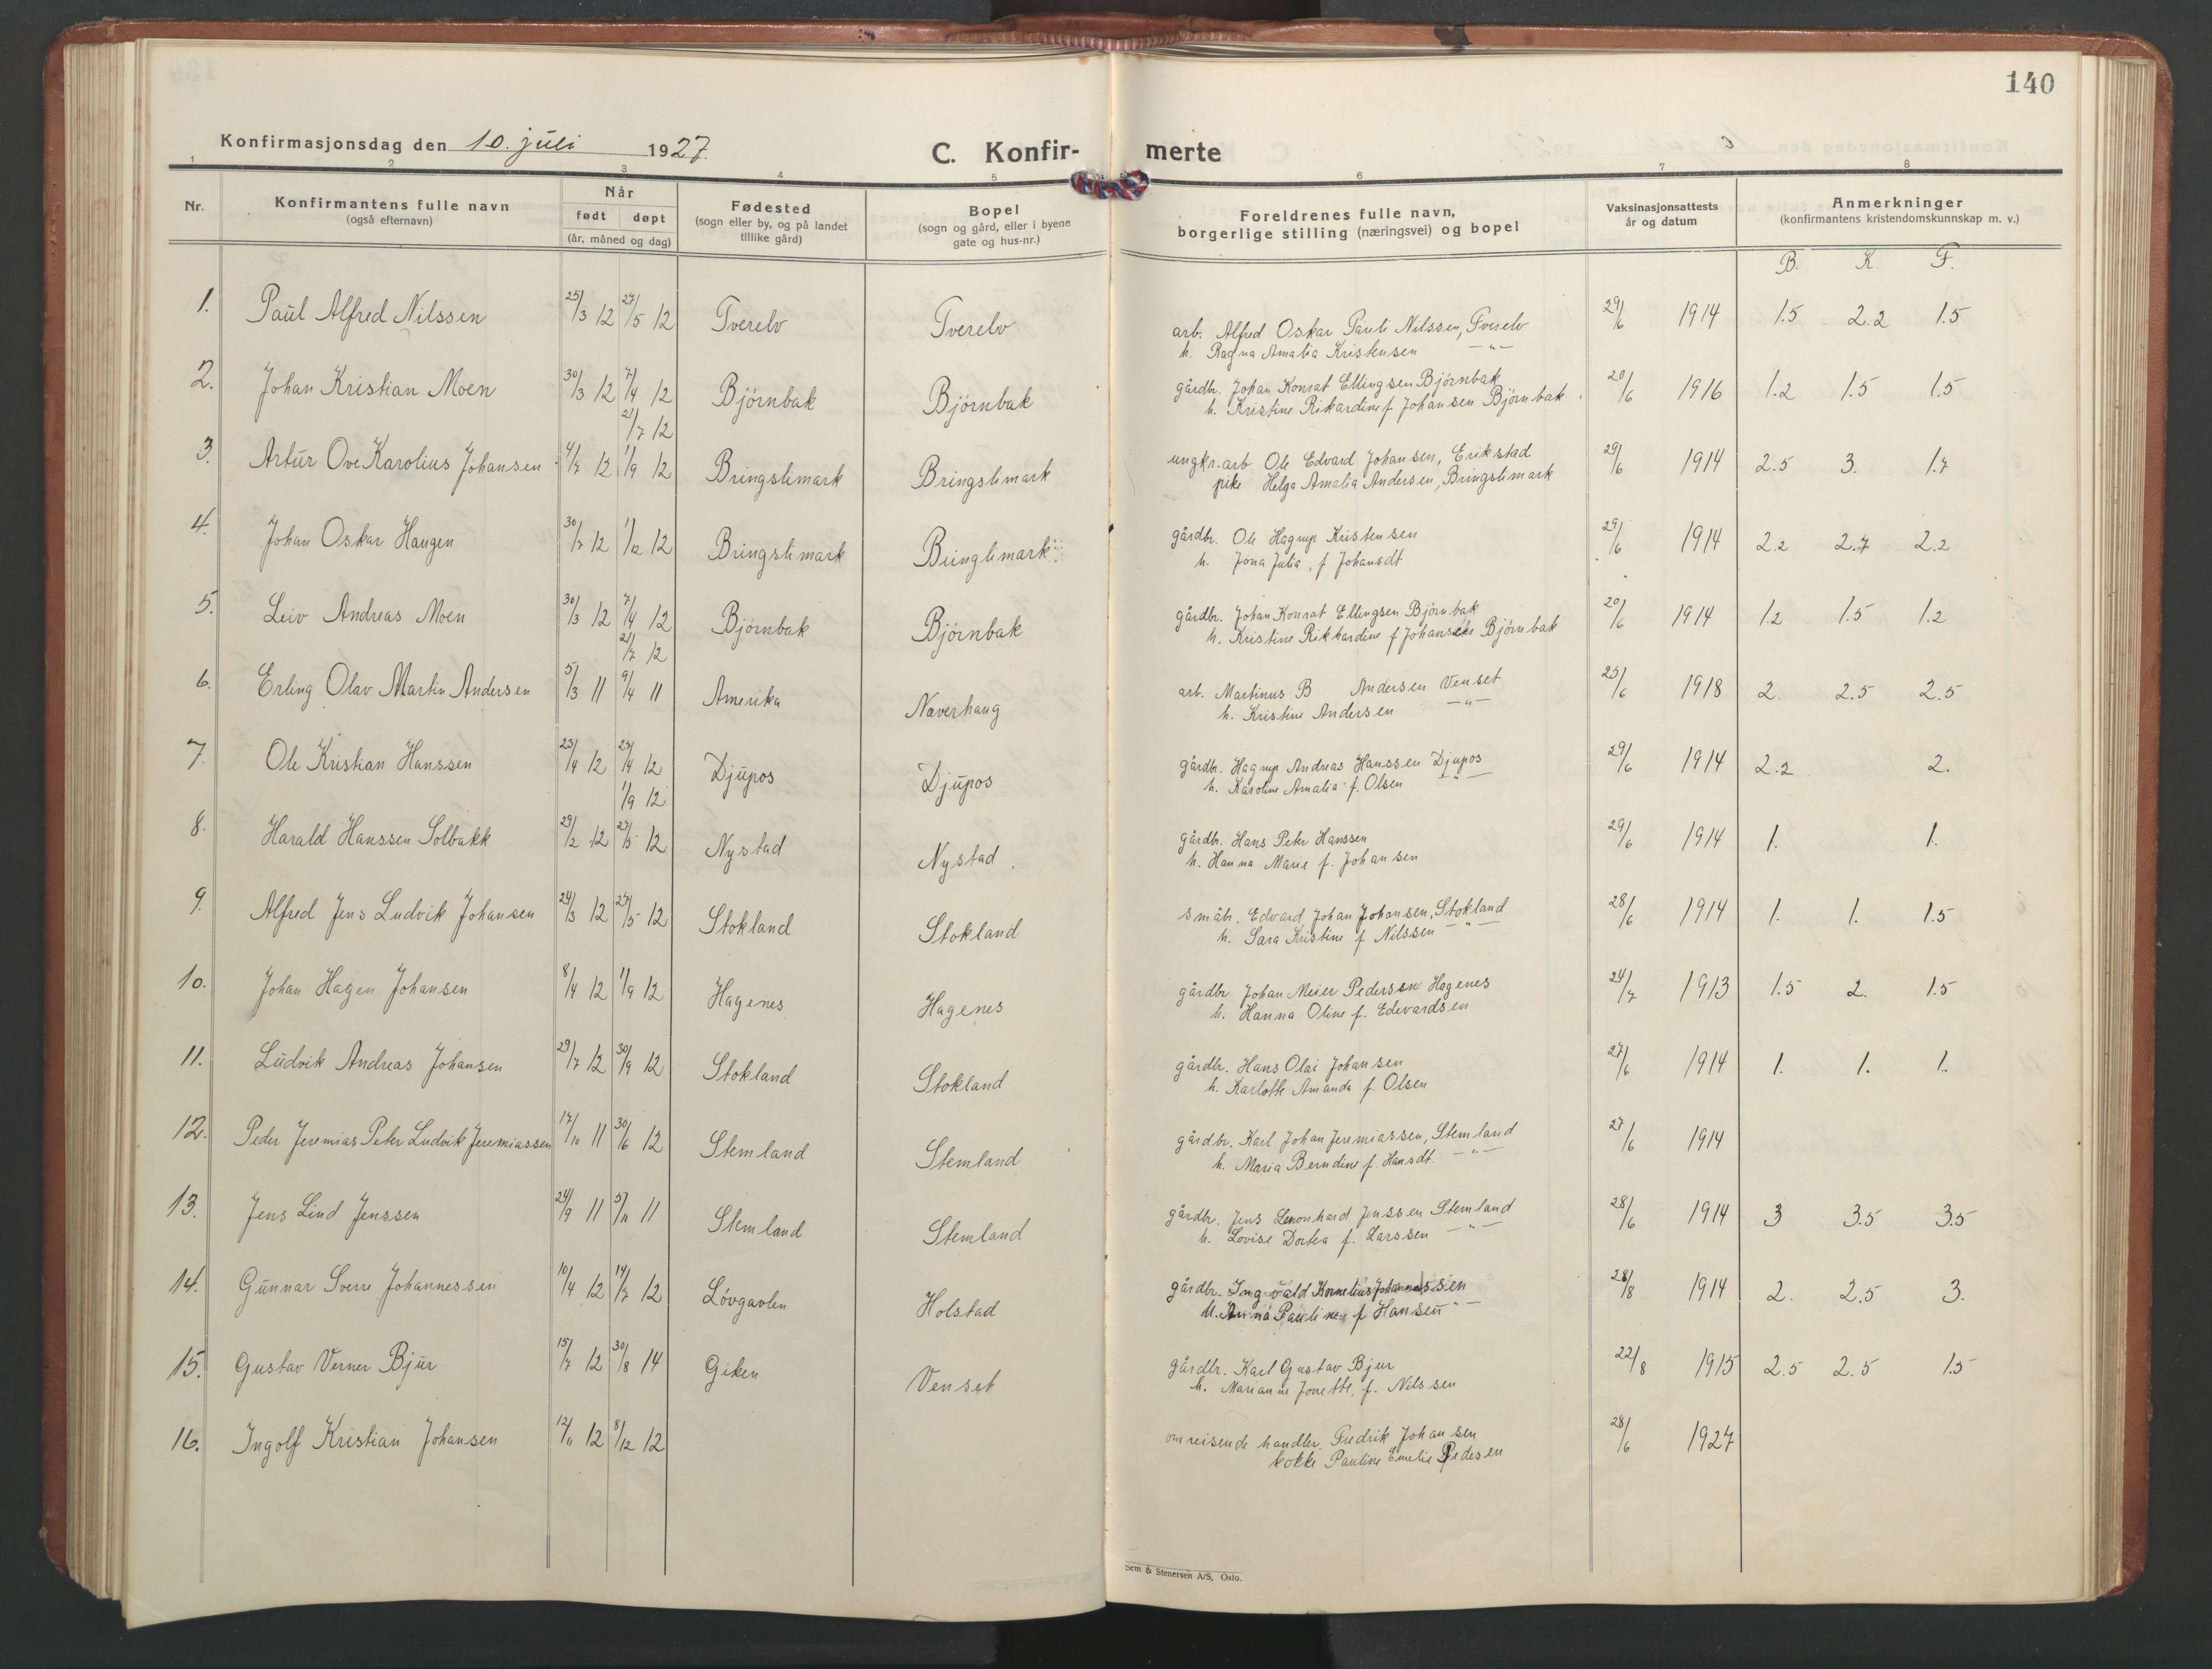 140
Konfirmasjonsdag den 10. juli 1927.
C. Konfir- merte
1 2 3 4 5 6 7 8
Nr.
Konfirmantens fulle navn
(også efternavn)
Når
født døpt
(år, måned og dag)
Fødested
(sogn eller by, og på landet
tillike gård)
Bopel
(sogn og gård, eller i byene
gate og hus-nr.)
Foreldrenes fulle navn,
borgerlige stilling (næringsvei) og bopel
Vaksinasjonsattests
år og datum
Anmerkninger
(konfirmantens kristendomskunnskap m. v.)
B. K. F.
1. Paul Alfred Nilssen 25/3 12 27/5 12 Tverelv Tverelv arb. Alfred Oskar Pauli Nilssen, Tverelv 29/6 1914 1.5 2.2 1.5
h. Ragna Amalia Kristensen —"—
2. Johan Kristian Moen 30/3 12 7/4 12 Bjørnbak Bjørnbak gårdbr. Johan Konrat Ellingsen Bjørnbak 20/6 1916 1.2 1.5 1.5
21/7 12 h. Kristine Rikardine f Johansen Bjørnbak
3. Artur Ove Karolius Johansen 4/7 12 1/9 12 Bringslimark Bringslimark ungkr. arb. Ole Edvard Johansen, Erikstad 29/6 1914 2.5 3. 1.7
pike Helga Amalia Andersen, Bringslimark
4. Johan Oskar Haugen 30/7 12 1/12 12 Bringslimark Bringlimark gårdbr. Ole Hagrup Kristensen 29/6 1914 2.2 2.7 2.2
h. Jona Julia, f Johansdt
5. Leiv Andreas Moen 30/3 12 7/4 12 Bjørnbak Bjørnbak gårdbr. Johan Konrat Ellingsen Bjørnbak 20/6 1914 1.2 1.5 1.2
21/7 12 h. Kristine Rikhardine f Johansen Bjørnbak
6. Erling Olav Martin Andersen 5/3 11 9/4 11 Amerika Naverhaug arb. Martinus B Andersen Venset 25/6 1918 2. 2.5 2.5
h. Kristine Andersen —"—
7. Ole Kristian Hanssen 23/4 12 27/4 12 Djupos Djupos gårdbr. Hagrup Andreas Hanssen Djupos 29/6 1914 2.2 2.
1/9 12 h. Karoline Amalia f. Olsen —"—
8. Harald Hanssen Solbakk 29/2 12 27/5 12 Nystad Nystad. gårdbr. Hans Peter Hanssen 29/6 1914 1. 1.
h. Hanna Marie f. Johansen
9. Alfred Jens Ludvik Johansen 24/3 12 27/5 12 Stokland Stokland småbr. Edvard Johan Johansen, Stokland 28/6 1914 1. 1. 1.5
h. Sara Kristine f Nilssen —"—
10. Johan Hagen Johansen 8/4 12 1/9 12 Hagenes Hagenes gårdbr Johan Meier Pedersen Hagenes 24/7 1913 1.5 2. 1.5
h. Hanna Oline f. Edevardsen
11. Ludvik Andreas Johansen 29/7 12 30/9 12 Stokland Stokland gårdbr. Hans Olai Johansen 27/6 1914 1. 1. 1.
h. Karlotte Amanda f. Olsen
12. Peder Jeremias Peter Ludvik Jeremiassen 17/10 11 30/6 12 Stemland Stemland gårdbr. Karl Johan Jeremiassen, Stemland 27/6 1914
h. Maria Berndine f. Hansdt. —"—
13. Jens Lind Jenssen 24/9 11 5/11 11 Stemland Stemland gårdbr. Jens Lenonhard Jenssen Stemland 28/6 1914 3 3.5 3.5
h. Lovise Dortea f. Larssen —"—
14. Gunnar Sverre Johannessen 10/4 12 14/7 12 Løvgavlen Holstad gårdbr. Ingvald Kornelius Johannessen 28/8 1914 2. 2.5 3.
h. Anna Pauline f Hansen —"—
15. Gustav Verner Bjur 15/7 12 30/8 14 Giken Venset gårdbr. Karl Gustav Bjur 22/8 1915 2.5 2.5 1.5
h. Marianne Jonette, f. Nilssen
16. Ingolf Kristian Johansen 12/11 12 8/12 12 omreisende handler. Fredrik Johansen 28/6 1927
kokke Pauline Emelie Pedesen
Sem & Stenersen A/S, Oslo.